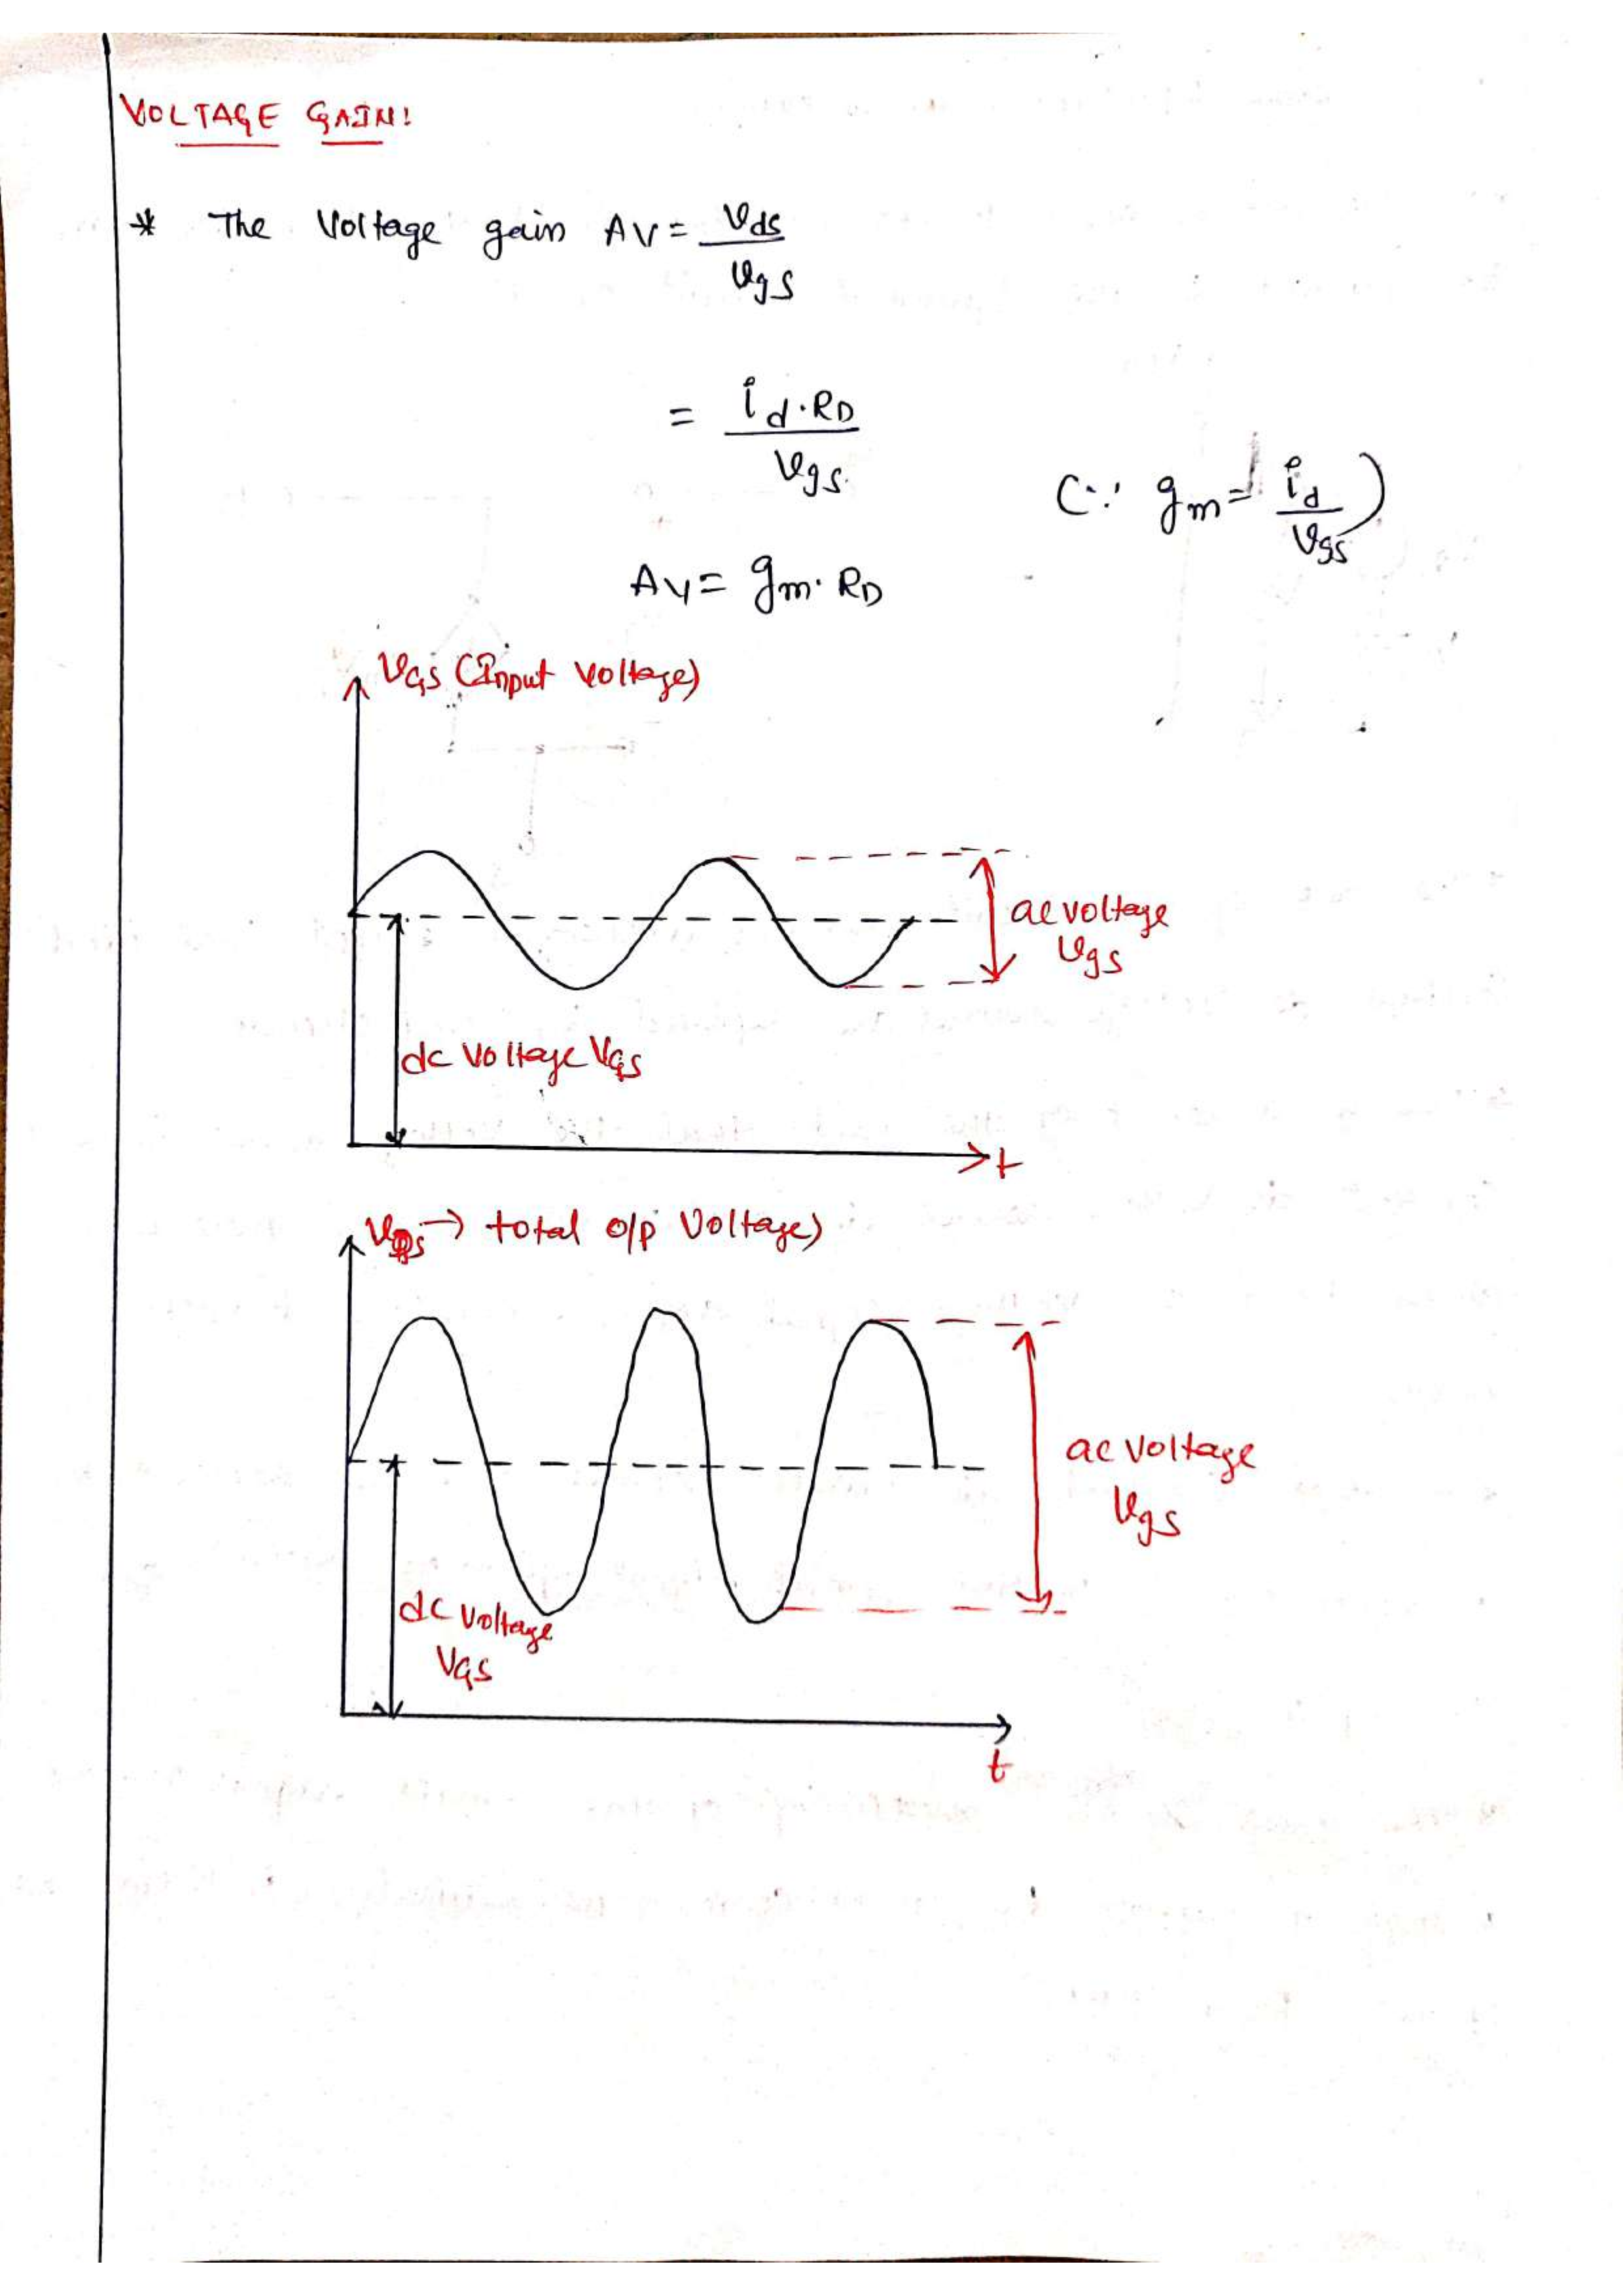 VOLTAGE GAIN:
* The Voltage gain AV = vds / vgs
= id·RD / vgs
(∵ gm = id / vgs)
AV = gm·RD
VGS (Input Voltage)
ac voltage
vgs
dc Voltage VGS
t
→ total o/p Voltage)
ac Voltage
vgs
dc Voltage
VGS
t